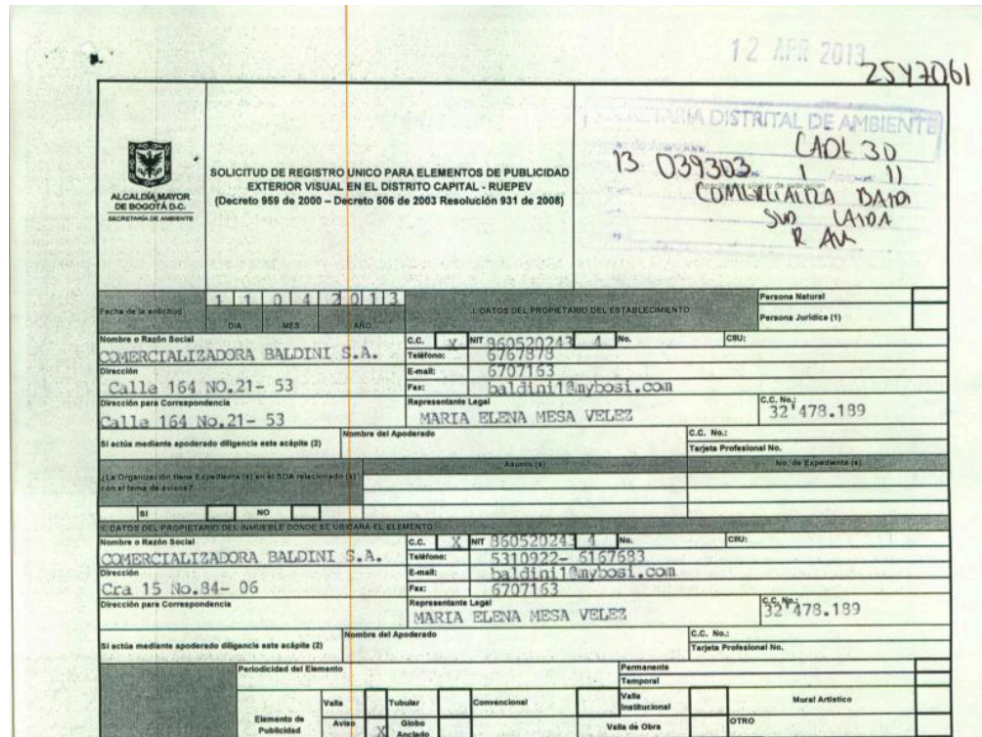 12 APR 2013
2547061
SECRETARIA DISTRITAL DE AMBIENTE
13 039303
CADE 30
1 11
ALCALDÍA MAYOR
DE BOGOTÁ D.C.
SECRETARÍA DE AMBIENTE
SOLICITUD DE REGISTRO UNICO PARA ELEMENTOS DE PUBLICIDAD
EXTERIOR VISUAL EN EL DISTRITO CAPITAL - RUEPEV
(Decreto 959 de 2000 – Decreto 506 de 2003 Resolución 931 de 2008)
Fecha de la solicitud
1 1 0 4 2 0 1 3
DIA MES AÑO
I. DATOS DEL PROPIETARIO DEL ESTABLECIMIENTO
Persona Natural
Persona Jurídica (1)
Nombre o Razón Social
COMERCIALIZADORA BALDINI S.A.
C.C. X NIT 860520243 4 No. CBU:
Teléfono: 6767878
Dirección
Calle 164 NO.21- 53
E-mail: 6707163
Fax: baldini1@mybosi.com
Dirección para Correspondencia
Calle 164 No.21- 53
Representante Legal
MARIA ELENA MESA VELEZ
C.C. No.:
32'478.189
Si actúa mediante apoderado diligencie este acápite (2)
Nombre del Apoderado
C.C. No.:
Tarjeta Profesional No.
¿La Organización tiene Expediente (s) en el SDA relacionado (s)
con el tema de avisos?
Asunto (s)
No. de Expediente (s)
SI NO
II. DATOS DEL PROPIETARIO DEL INMUEBLE DONDE SE UBICARÁ EL ELEMENTO
Nombre o Razón Social
COMERCIALIZADORA BALDINI S.A.
C.C. X NIT 860520243 4 No. CBU:
Teléfono: 5310922- 6167683
Dirección
Cra 15 No.84- 06
E-mail: baldini1@mybosi.com
Fax: 6707163
Dirección para Correspondencia
Representante Legal
MARIA ELENA MESA VELEZ
C.C. No.:
32'478.189
Si actúa mediante apoderado diligencie este acápite (2)
Nombre del Apoderado
C.C. No.:
Tarjeta Profesional No.
Periodicidad del Elemento
Permanente
Temporal
Elemento de
Publicidad
Valla Tubular Convencional Valla
Institucional
Mural Artistico
Aviso X Globo
Anclado
Valla de Obra OTRO